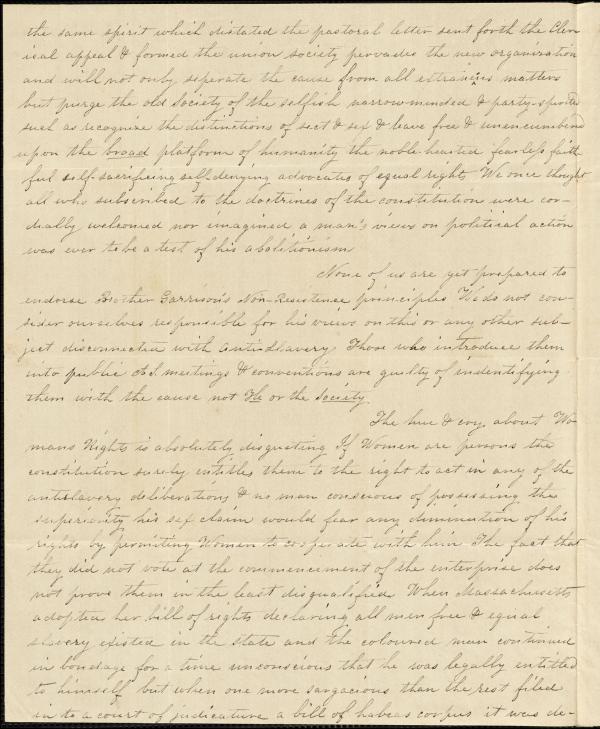 the same spirit which dictated the pastoral letter sent forth the Cler-
ical appeal & formed the union society pervades the new organization
and will not only seperate the cause from all extranious matters
but purge the old Society of the selfish narrow minded & party-spirited
such as recognize the distinctions of sect & sex & leave free & unencumbered
upon the broad platform of humanity the noble hearted fearless faith
ful self-sacrificing self-denying advocates of equal rights We once thought
all who subscribed to the doctrines of the constitution were cor-
dially welcomed nor imagined a man's views on political action
was ever to be a test of his abolitionism
None of us are yet prepared to
endorse Brother Garrison's Non-Resistence principles We do not con-
sider ourselves responsible for his views on this or any other sub-
ject disconnected with Antislavery. Those who introduce them
into public A.S. meetings & conventions are guilty of indentifying
them with the cause not He or the Society.
The hue & cry about Wo-
mans Rights is absolutely disgusting If Women are persons the
constitution surely entitles them to the right to act in any of the
antislavery deliberations & no man conscious of possessing the
superiority his sex claim would fear any diminution of his
rights by permiting Women to cooperate with him. The fact that
they did not vote at the commencement of the enterprise does
not prove them in the least disqualified. When Massachusetts
adopted her bill of rights declaring all men free & equal
slavery existed in the state and the coloured man continued
in bondage for a time unconscious that he was legally entitled
to himself but when one more sargacious than the rest filed
in to a court of judicature a bill of habeas corpus it was de-